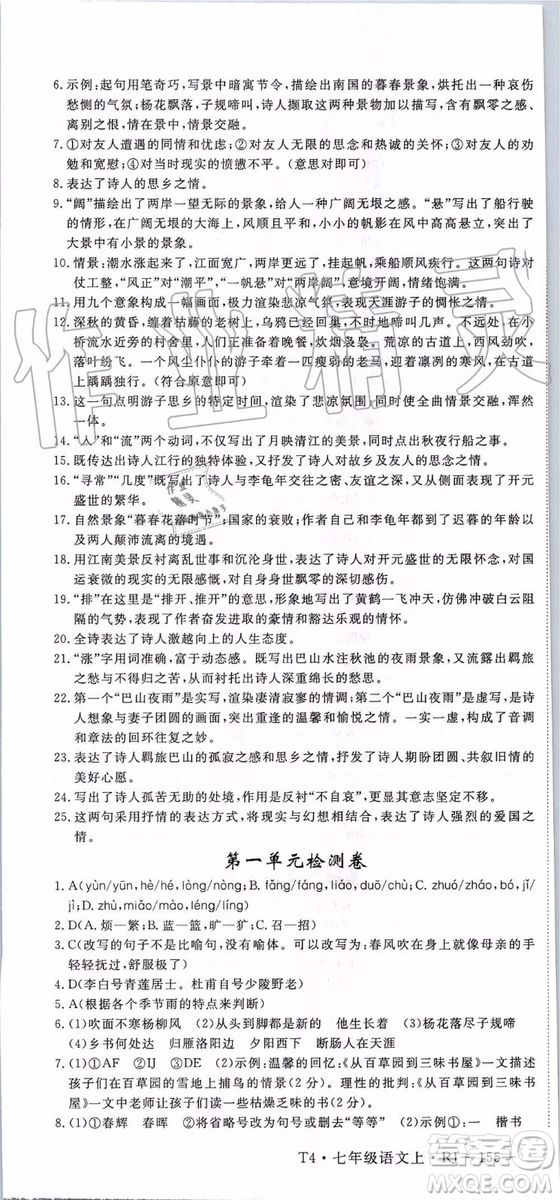 6. 示例：起句用笔奇巧，写景中暗寓节令，描绘出南国的暮春景象，烘托出一种哀伤
愁恻的气氛；杨花飘落，子规啼叫，诗人撷取这两种景物加以描写，含有飘零之感、
离别之恨，情在景中，情景交融。
7. ①对友人遭遇的同情和忧虑；②对友人无限的思念和热诚的关怀；③对友人的劝
勉和宽慰；④对当时现实的愤懑不平。（意思对即可）
8. 表达了诗人的思乡之情。
9. “阔”描绘出了两岸一望无际的景象，给人一种广阔无垠之感。“悬”写出了船行驶
的情形，在广阔无垠的大海上，风顺和平，小小的帆影在风中高高悬挂，突出了
大景中有小景的景象。
10. 情景：潮水涨起来了，江面宽广，两岸更远了，挂起帆，乘船顺风疾行。这两句诗对
仗工整，“风正”对“潮平”，“一帆悬”对“两岸阔”，意境开阔，情绪饱满。
11. 用九个意象构成一幅画面，极力渲染悲凉气氛，表现天涯游子的惆怅之情。
12. 深秋的黄昏，缠着枯藤的老树上，乌鸦已经归巢，不时啼叫几声。不远处，在小
桥流水近旁的村舍里，人们正在准备着晚餐，炊烟袅袅。荒凉的古道上，西风劲吹，
落叶纷飞，一个远离家乡的游子骑着一匹瘦弱的老马，迎着凛冽的寒风，在古道
上踽踽独行。（符合原意即可）
13. 这一句点明游子思乡的特定时间，渲染了悲凉氛围，同时使全曲情景交融，浑然
一体。
14. “入”和“流”两个动词，不仅写出了月映清江的美景，同时点出秋夜行船之事。
15. 既传达出诗人江行的独特体验，又抒发了诗人对故乡及友人无尽的思念之情。
16. “寻常”“几度”，既写出了诗人与李龟年交往之密切，又含蓄地写出了人们对开元
盛世的繁华。
17. 自然景象“暮春花落时节”；国家的衰败；作者自己与李龟年都到了迟暮的年龄以
及两人颠沛流离的境遇。
18. 用江南美景反衬离乱世事和沉沦身世，表达了诗人对开元盛世的无限怀念，对国
运衰微的现实的无限感慨，对自己身世飘零的深切感伤。
19. “排”在这里是“排开、推开”的意思，形象地写出了黄鹤一飞冲天，仿佛冲破白云阻
隔的气势，体现了作者奋发进取的豪情和豁达乐观的情怀。
20. 全诗表达了诗人激越向上的人生态度。
21. “涨”字用词准确，富于动态感。既形象地写出巴山水注秋池的夜雨景象，又突出羁旅
之思的深广，从而衬托出诗人深重绵长的愁思。
22. 第一个“巴山夜雨”是实写，渲染凄清寂寥的情调；第二个“巴山夜雨”是虚写，是诗
人想象与妻子团圆的画面，表现出重逢的温馨和愉悦的气氛。构成了音调和
章法的回环往复之妙。
23. 表达了诗人羁旅巴山的孤寂之感和思乡之情，抒发了诗人期盼团圆、共叙旧情的
美好心愿。
24. 写出了诗人孤苦无助的处境，作用是反衬“不自哀”，更显出诗人的崇高境界。
25. 这两句采用抒情的表达方式，写出了诗人的豪情壮志，表达了诗人强烈的爱国之
情。
第一单元检测卷
1. A（yùn/yūn，hè/hé，lòng/nòng；B. fǎng/fáng，liáo，duō/chù；C. zhuó/zháo，bó，jǐ/
jì；D. zhù，miǎo/mào，léng/líng）
2. D（A. 烦—繁；B. 蓝—篮，旷—犷；C. 召—招）
3. C（改写的句子不是比喻句，没有比喻义，可改写为：春风吹在脸上就像母亲的手
轻轻抚过，舒服极了）
4. D（李白号青莲居士。杜甫自号少陵野老）
5. A（根据各个季节雨的特点来判断）
6. （1）吹面不寒杨柳风 （2）从头到脚都是新的 他生长着 （3）杨花落尽子规啼
（4）乡书何处达 归雁洛阳边 夕阳西下 断肠人在天涯
7. （1）①AF ②IJ ③DE （2）示例：温馨的回忆：《从百草园到三味书屋》一文描述
孩子们在百草园的雪地上捕鸟的情景（2分）。理性的批判：《从百草园到三味书
屋》一文中老师让孩子们读一些枯燥乏味的书（2分）。
8. （1）①春辉 春晖 ②将省略号改为句号或删去“等等” （2）示例①：一 楷书
T4·七年级语文上·RJ — 155 —